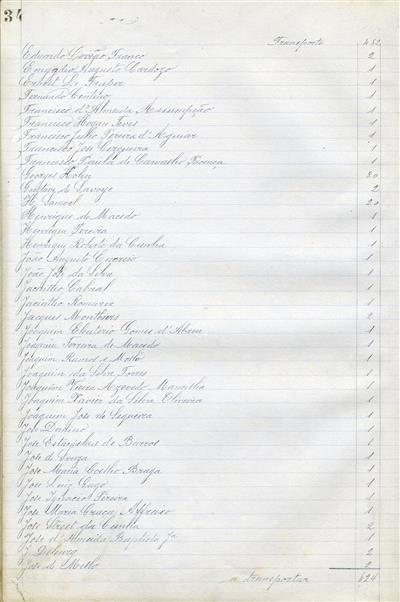 34
Transporte 482
Eduardo Gavião Franco 2
Emygdio Augusto Cardozo 1
Ernest La Trape 1
Fernando Centeno 1
Francisco d'Almeida Assumpção 1
Francisco Hogan Teves 1
Francisco Julio Pereira d'Aguiar 1
Francisco José Cerqueira 1
Francisco Paula de Carvalho 1
Georges Hohn 80
Gustave de Savoye 2
H. Samoel 20
Henrique de Macedo 1
Henrique Pereira 1
Henrique Roberto da Cunha 1
João Augusto 1
João José da Silva 1
Jacintho Cabral 1
Jacintho 1
Jacques 2
Joaquim Eleuterio Gomes d'Abreu 1
Joaquim Ferreira de Macedo 1
Joaquim Ramos e Motta 1
Joaquim da Silva Torres 1
Joaquim Vieira Azevedo 1
Joaquim Xavier da Silva Oliveira 1
Joaquim José de Sequeira 1
José 1
José Estanislau de Barros 1
José de Souza 1
José Maria Coelho Braga 1
José Luiz Gago 1
José Ignacio Pereira 1
José Maria 1
José Street da Cunha 2
José d'Almeida Baptista Jr 1
J. 2
José de Mello 2
a transportar 624